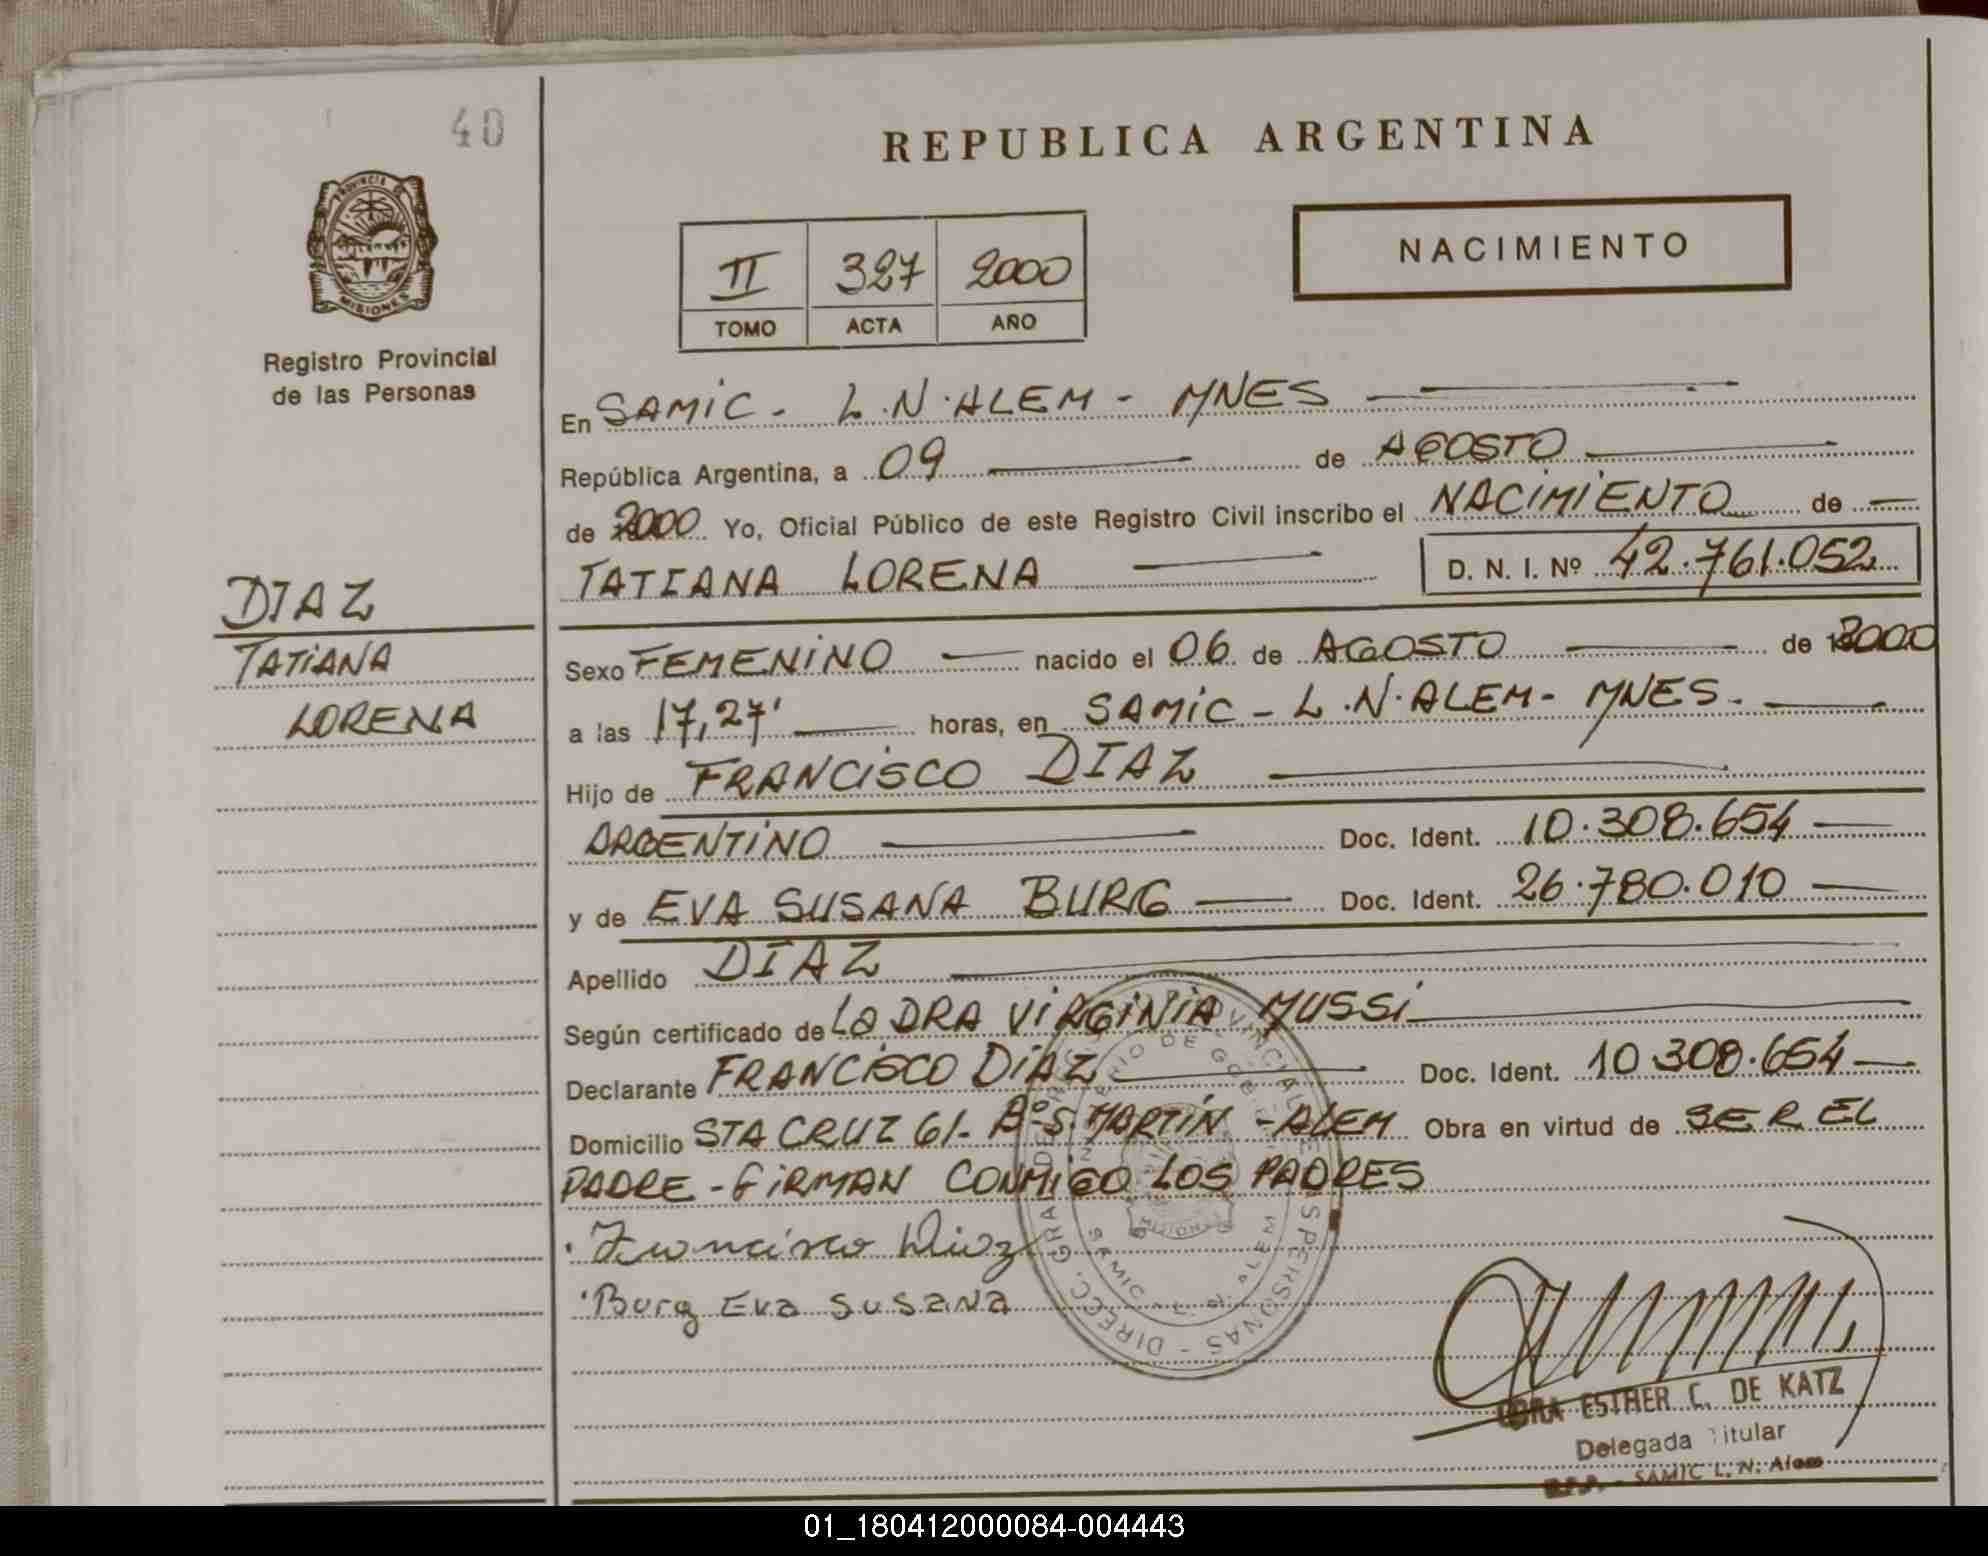 40
REPUBLICA ARGENTINA
PROVINCIA DE
MISIONES
Registro Provincial
de las Personas
II 327 2000
TOMO ACTA AÑO
NACIMIENTO
En SAMIC - L.N.ALEM - MNES
República Argentina, a 09 de AGOSTO
de 2000 Yo, Oficial Público de este Registro Civil inscribo el NACIMIENTO de
TATIANA LORENA D. N. I. Nº 42.761.052
DIAZ
TATIANA
LORENA
Sexo FEMENINO nacido el 06 de AGOSTO de 2000
a las 17,27' horas, en SAMIC - L.N.ALEM - MNES.
Hijo de FRANCISCO DIAZ
ARGENTINO Doc. Ident. 10.308.654
y de EVA SUSANA BURG Doc. Ident. 26.780.010
Apellido DIAZ
Según certificado de La DRA VIRGINIA MUSSI
Declarante FRANCISCO DIAZ Doc. Ident. 10 308.654
Domicilio STA CRUZ 61. Bº S. MARTIN - ALEM Obra en virtud de SER EL
PADRE - FIRMAN CONMIGO LOS PADRES
Francisco Diaz
Burg Eva Susana
ESTHER C. DE KATZ
Delegada Titular
SAMIC L. N. Alem
01_180412000084-004443